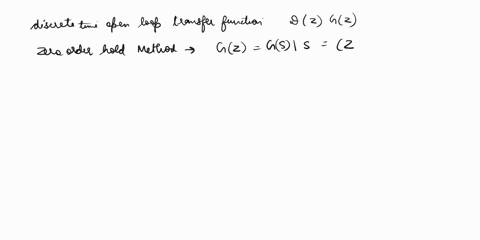 discrete time open loop transfer function D(z) G(z)
zero order hold Method → G(z) = G(s) | s = (z